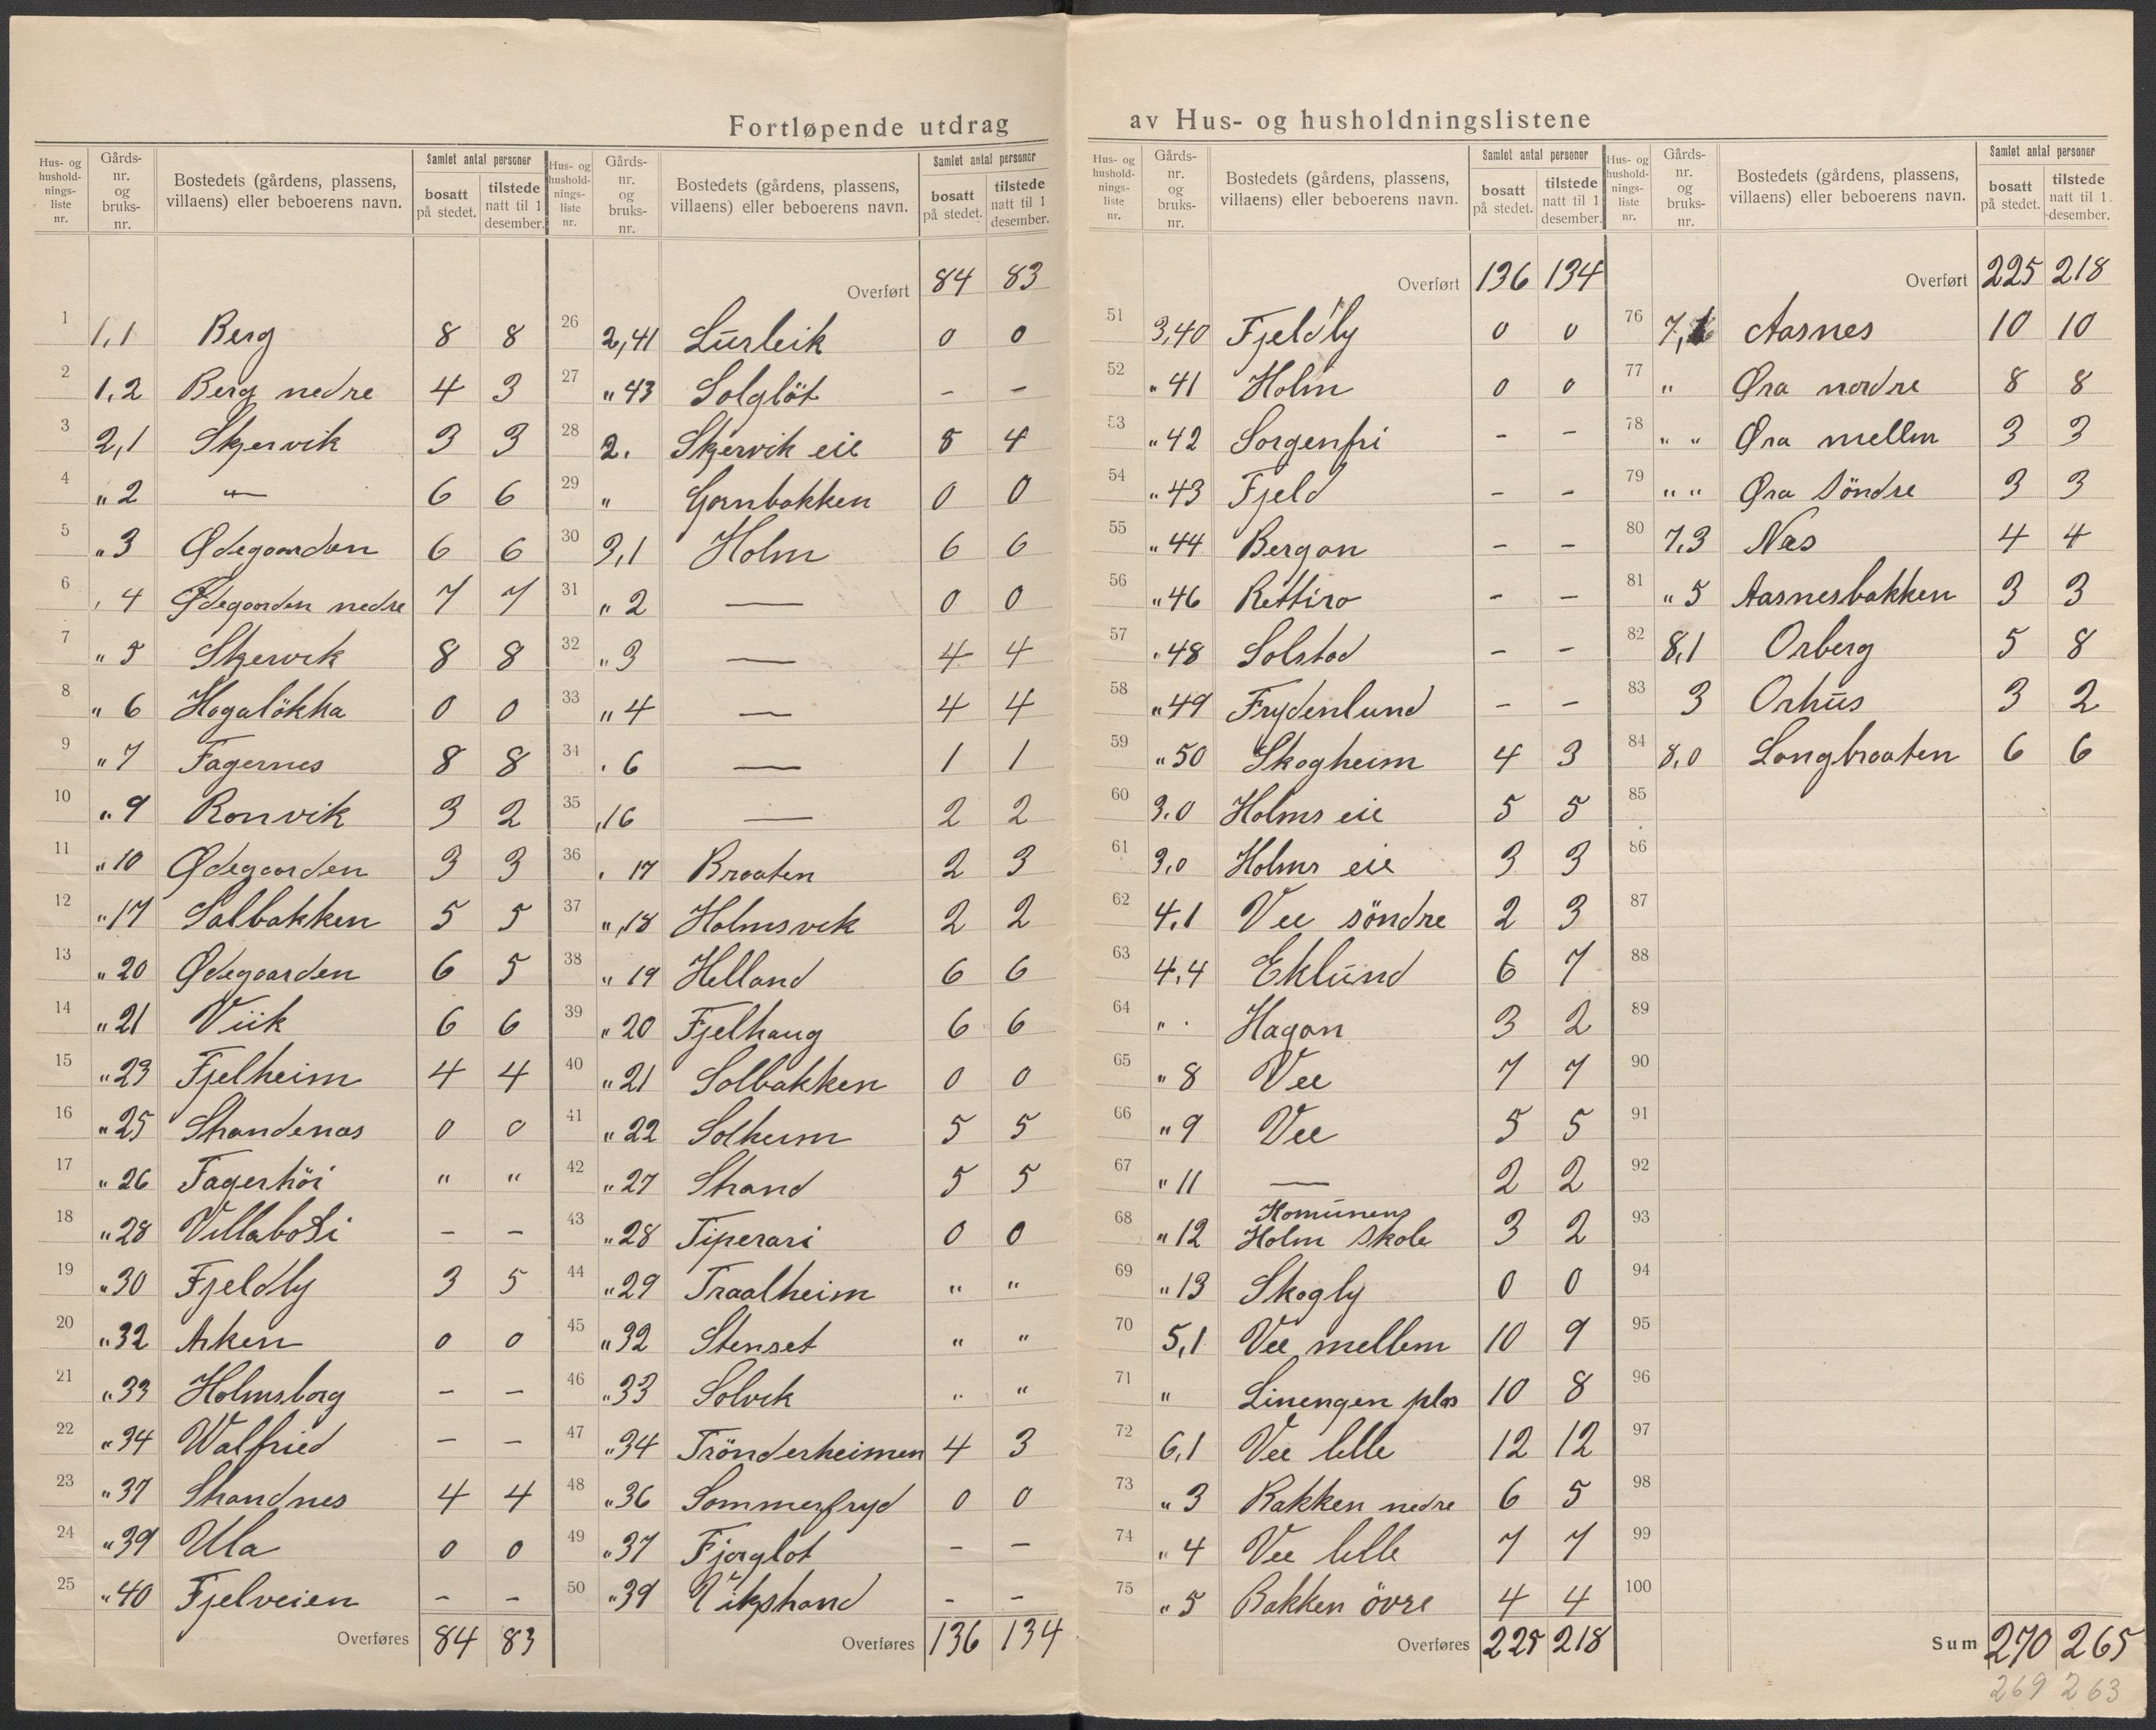 Fortløpende utdrag av Hus- og husholdningslistene
Hus- og husholdnings-liste nr. | Gårds-nr. og bruks-nr. | Bostedets (gårdens, plassens, villaens) eller beboerens navn. | Samlet antal personer bosatt på stedet. | tilstede natt til 1 desember.
1 1,1 Berg 8 8
2 1,2 Berg nedre 4 3
3 2,1 Skjervik 3 3
4 " 2 — " — 6 6
5 " 3 Ødegaarden 6 6
6 , 4 Ødegaarden nedre 7 7
7 " 5 Skjervik 8 8
8 " 6 Hagaløkka 0 0
9 " 7 Fagernes 8 8
10 " 9 Ronvik 3 2
11 " 10 Ødegaarden 3 3
12 " 17 Solbakken 5 5
13 " 20 Ødegaarden 6 5
14 " 21 Viik 6 6
15 " 23 Fjelheim 4 4
16 " 25 Strandenas 0 0
17 " 26 Fagerhöi " "
18 " 28 Villa - -
19 " 30 Fjeldly 3 5
20 " 32 Arken 0 0
21 " 33 Holmsborg - -
22 " 34 Walfried - -
23 " 37 Strandnes 4 4
24 " 39 Ula 0 0
25 " 40 Fjelveien - -
Overføres 84 83
Hus- og husholdnings-liste nr. | Gårds-nr. og bruks-nr. | Bostedets (gårdens, plassens, villaens) eller beboerens navn. | Samlet antal personer bosatt på stedet. | tilstede natt til 1 desember.
Overført 84 83
26 2,41 Lurleik 0 0
27 " 43 Solgløt - -
28 2. Skjervik eie 5 4
29 " Gornbakken 0 0
30 3,1 Holm 6 6
31 " 2 — 0 0
32 " 3 — 4 4
33 " 4 — 4 4
34 . 6 — 1 1
35 ,16 — 2 2
36 . 17 Braaten 2 3
37 " ,18 Holmsvik 2 2
38 " 19 Helland 6 6
39 " 20 Fjelhaug 6 6
40 " 21 Solbakken 0 0
41 " 22 Solheim 5 5
42 " 27 Strand 5 5
43 " 28 Tiperari 0 0
44 " 29 Traalheim " "
45 " 32 Stenset " "
46 " 33 Solvik " "
47 " 34 Trönderheimen 4 3
48 " 36 Sommerfryd 0 0
49 " 37 Fjorgløt - -
50 " 39 Vikstrand - -
Overføres 136 134
Hus- og husholdnings-liste nr. | Gårds-nr. og bruks-nr. | Bostedets (gårdens, plassens, villaens) eller beboerens navn. | Samlet antal personer bosatt på stedet. | tilstede natt til 1 desember.
Overført 136 134
51 3,40 Fjeldly 0 0
52 " 41 Holm 0 0
53 " 42 Sorgenfri - -
54 " 43 Fjeld - -
55 " 44 Bergan - -
56 " 46 Rettiro - -
57 " 48 Solstad - -
58 " 49 Frydenlund - -
59 " 50 Skogheim 4 3
60 3.0 Holms eie 5 5
61 3,0 Holms eie 3 3
62 4,1 Vee söndre 2 3
63 4,4 Eklund 6 7
64 " . Hagan 3 2
65 " 8 Vee 7 7
66 " 9 Vee 5 5
67 " 11 — 2 2
68 " 12 Komunens Holm Skole 3 2
69 " 13 Skogly 0 0
70 5,1 Vee mellem 10 9
71 " Linengen plas 10 8
72 6,1 Vee lille 12 12
73 " 3 Bakken nedre 6 5
74 " 4 Vee lille 7 7
75 " 5 Bakken övre 4 4
Overføres 225 218
Hus- og husholdnings-liste nr. | Gårds-nr. og bruks-nr. | Bostedets (gårdens, plassens, villaens) eller beboerens navn. | Samlet antal personer bosatt på stedet. | tilstede natt til 1. desember.
Overført 225 218
76 7,1 Aasnes 10 10
77 " Øra nordre 8 8
78 " " Øra mellm 3 3
79 " " Øra Söndre 3 3
80 7,3 Næs 4 4
81 " 5 Aasnesbakken 3 3
82 8,1 Orberg 5 8
83 3 Orhus 3 2
84 8,0 Langbraaten 6 6
85
86
87
88
89
90
91
92
93
94
95
96
97
98
99
100
Sum 270 265
269 263